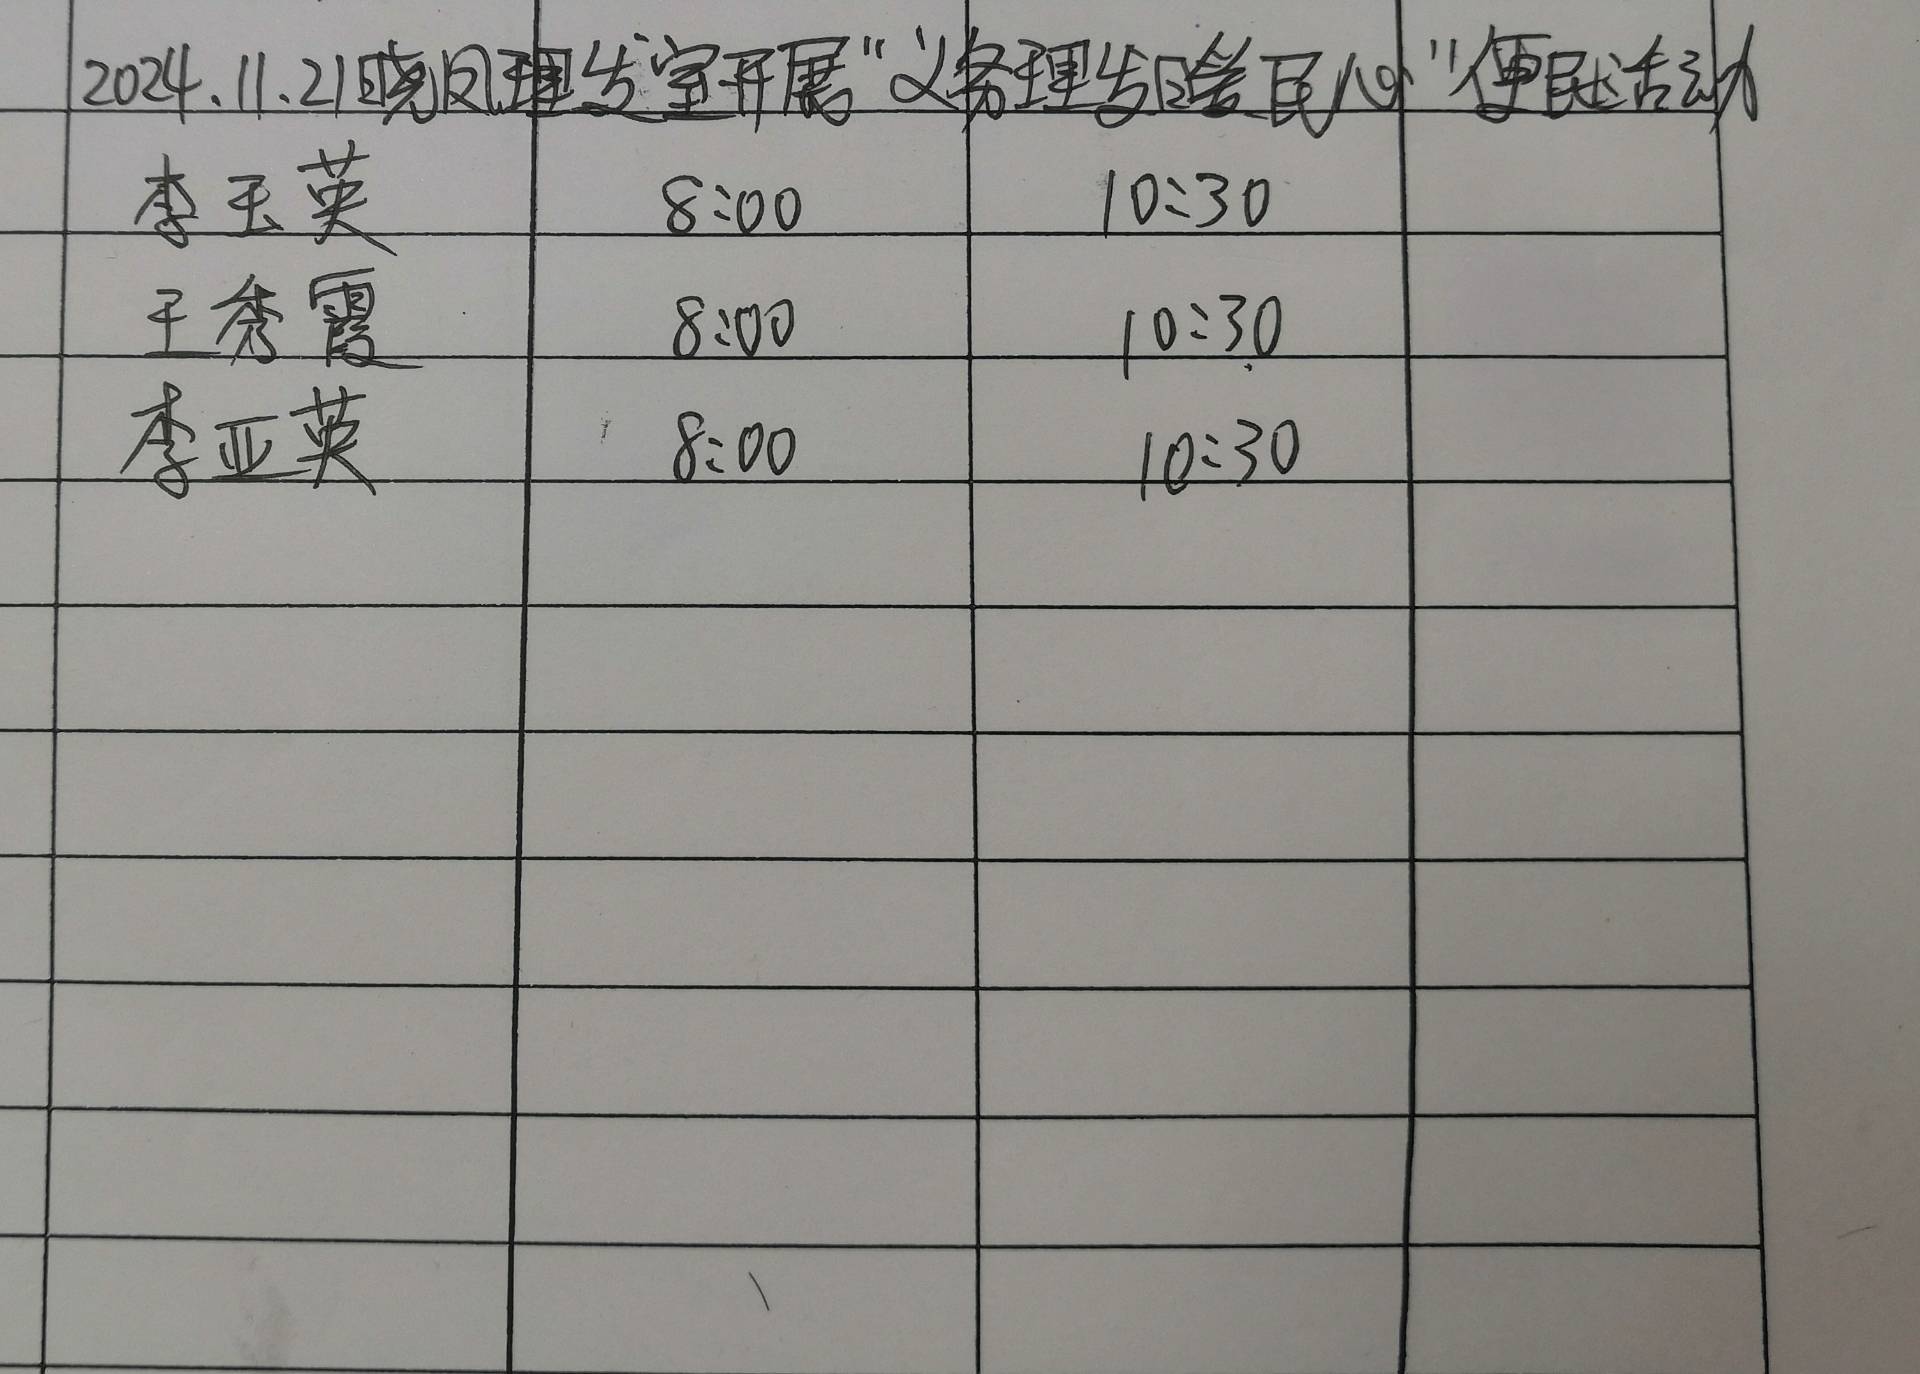 2024.11.21晓风理发室开展"义务理发暖民心"便民活动
李玉英 8:00 10:30
王秀霞 8:00 10:30
李亚英 8:00 10:30